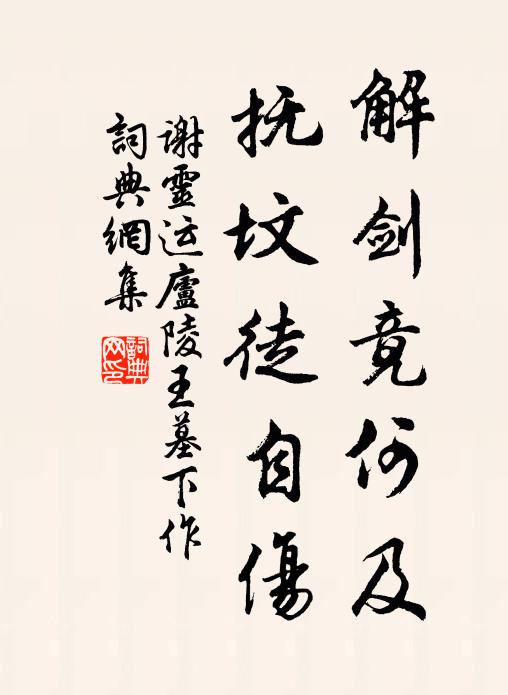 解剑竟何及
抚坟徒自傷
谢靈运廬陵王墓下作
詞典網集
詞典网印